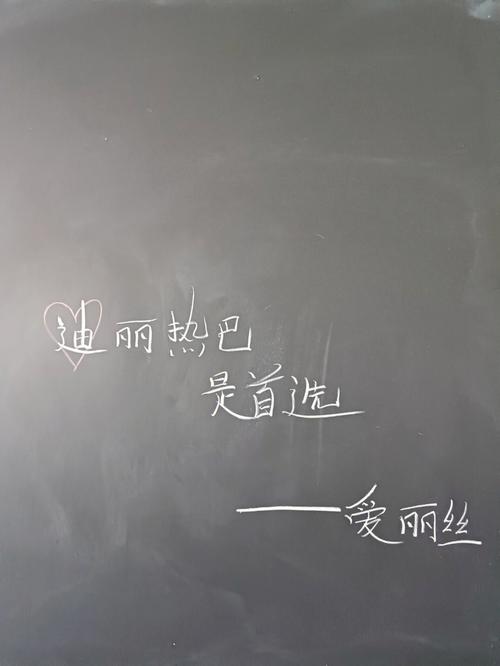 迪丽热巴
是首选
——爱丽丝